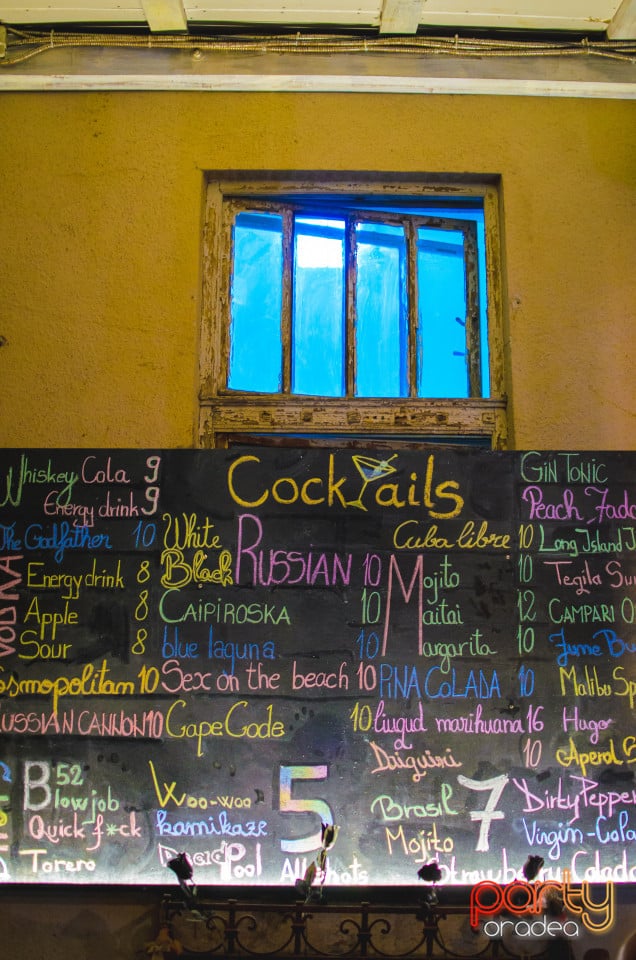 Whiskey Cola 9
Energy drink 9
The Godfather 10
VODKA
Energy drink 8
Apple 8
Sour 8
osmopolitan 10
RUSSIAN CANNON 10
B52
Blowjob
Quick f*ck
Torero
CockTails
White
Black
RUSSIAN 10
CAIPIROSKA 10
blue laguna 10
Sex on the beach 10
Cape Code 10
Woo-woo
kamikaze
Pool
5
Cuba libre 10
Mojito 10
Maitai 12
Margarita 10
PiNA COLADA 10
liuqud marihuana 16
Daiquini 10
Brasil
Mojito
7
GIN TONIC
PEACH
Long Island
Teqila
CAMPARI O
June
Malibu
Hugo
Aperol
Dirty Pepper
Virgin-Cola
party
oradea